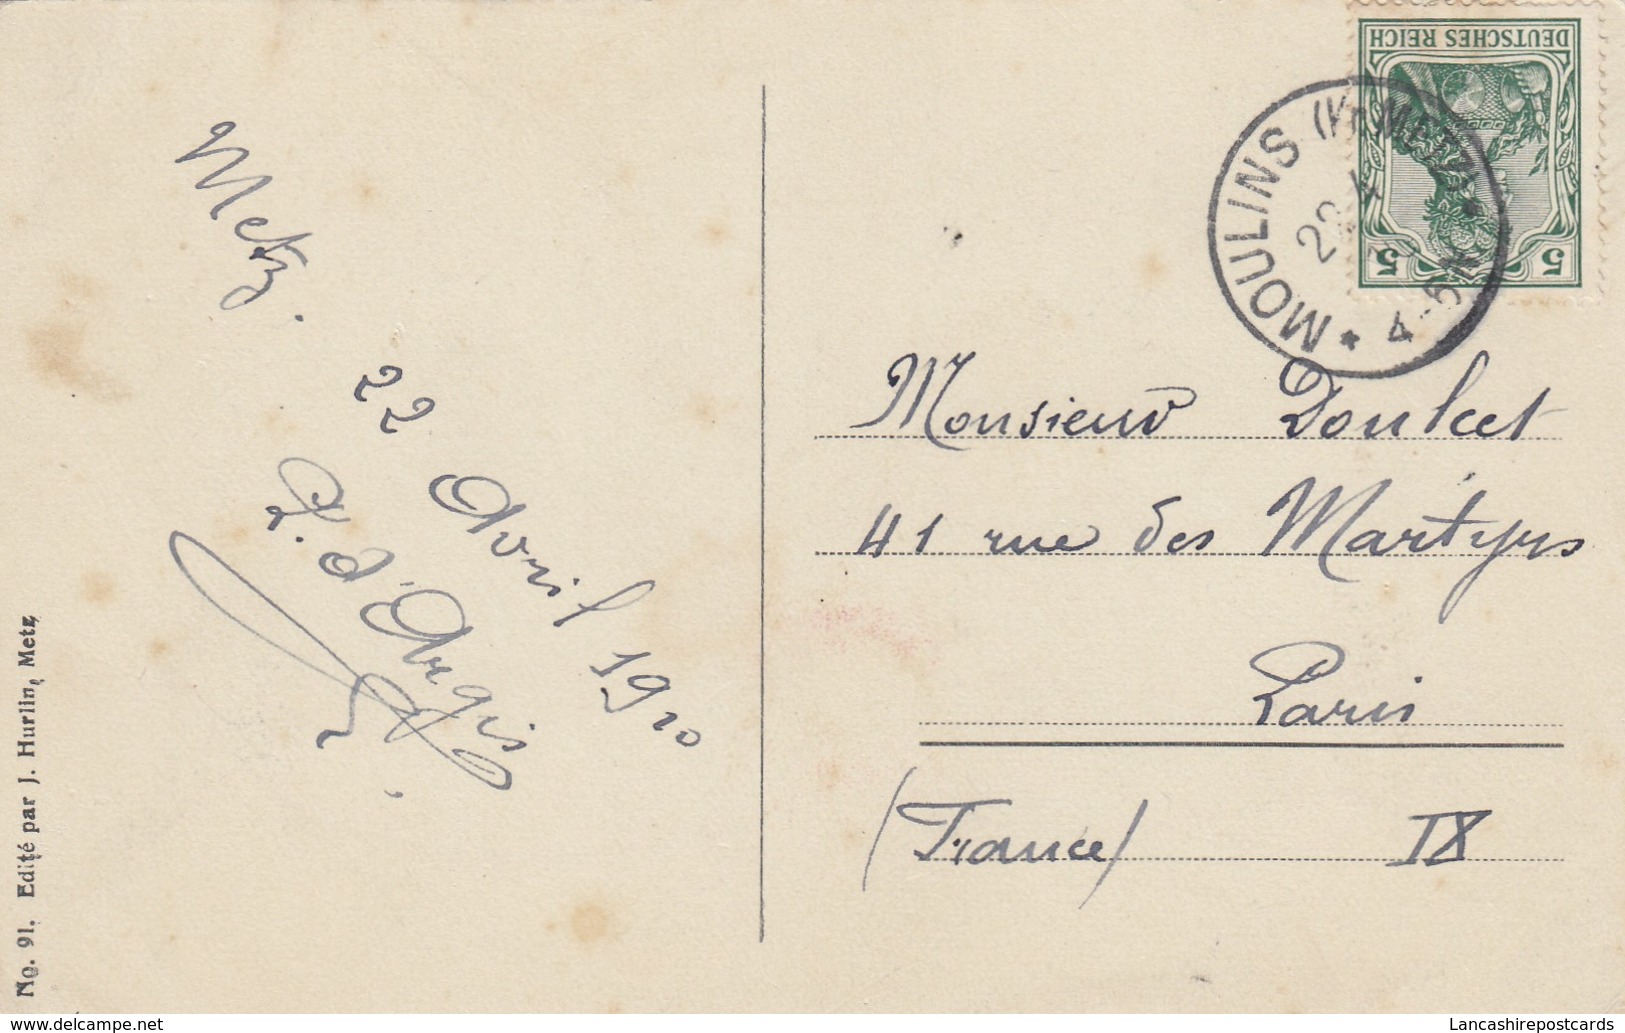 Metz.
22 Avril 1910
d'Argis
No. 91. Edité par J. Hurlin, Metz
DEUTSCHES REICH
5 5
MOULINS METZ
22 4
4-5N
Monsieur Doulcet
41 rue des Martyrs
Paris
(France) IX
Lancashirepostcards